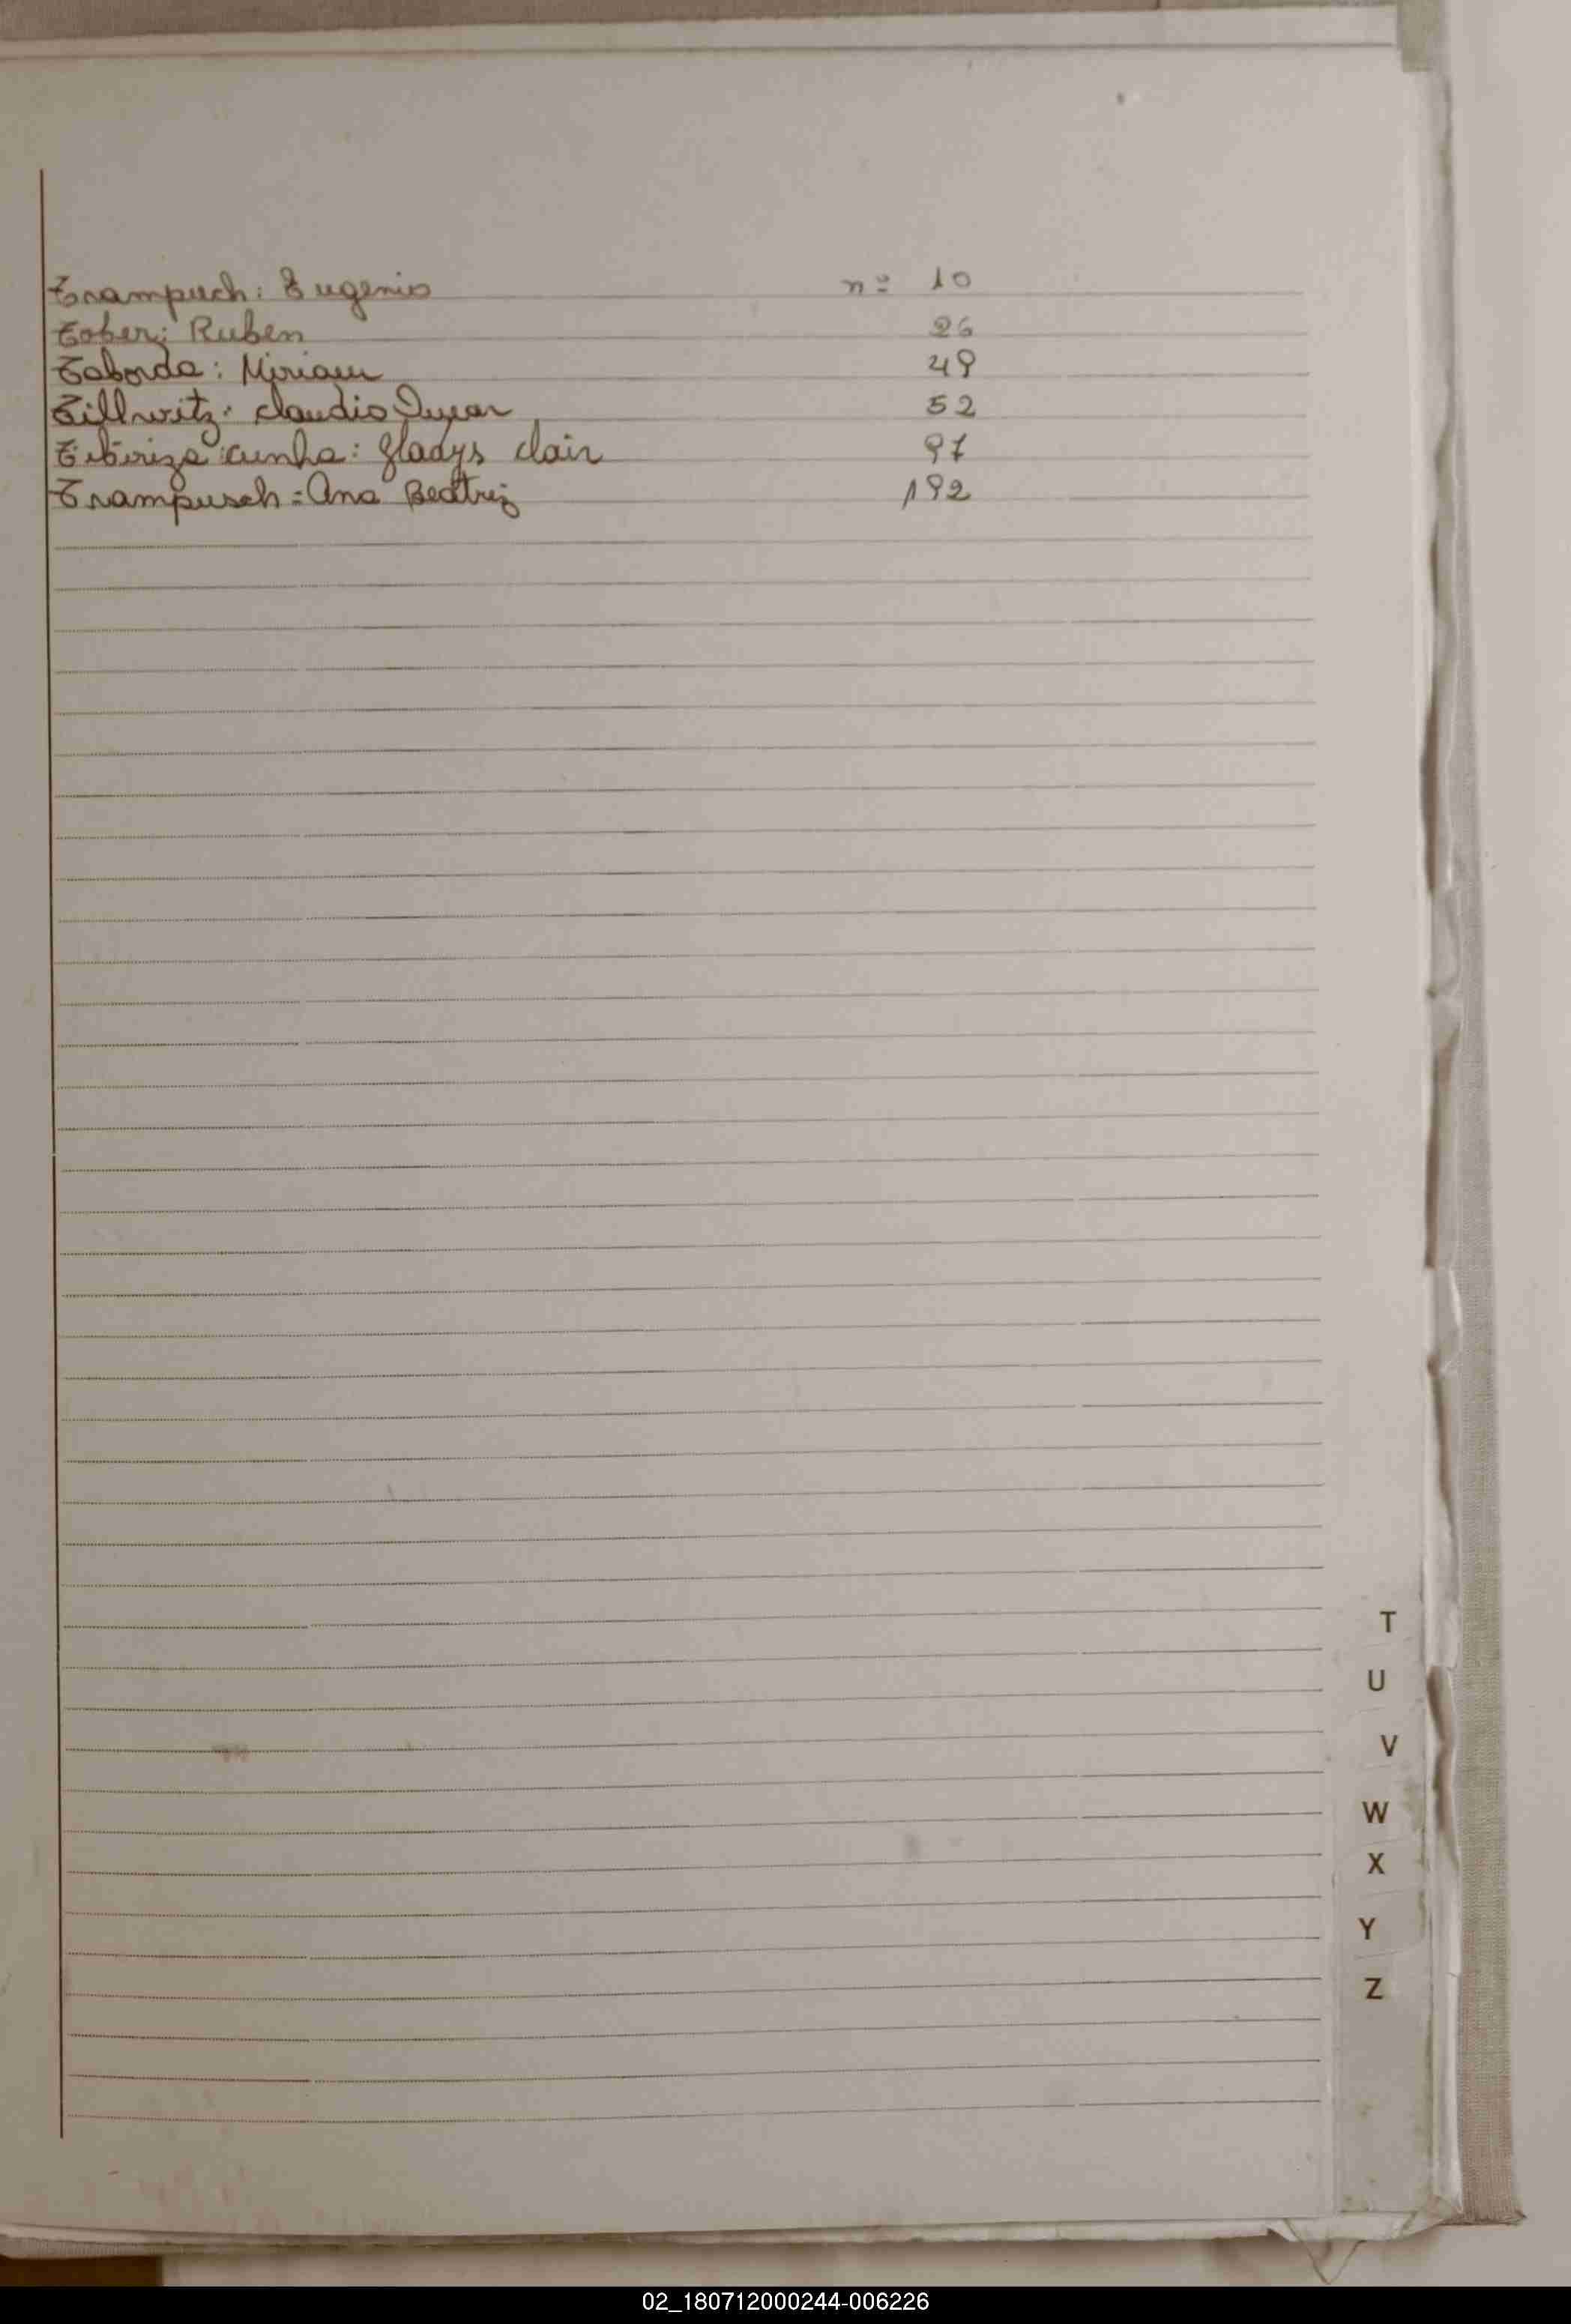 Trampuch: Eugenio nº 10
Tober: Ruben 26
Taborda: Miriam 49
Tillwitz: Claudio 52
Tibiriza cunha: Gladys clair 97
Trampusch = Ana Beatriz 192
T
U
V
W
X
Y
Z
02_180712000244-006226